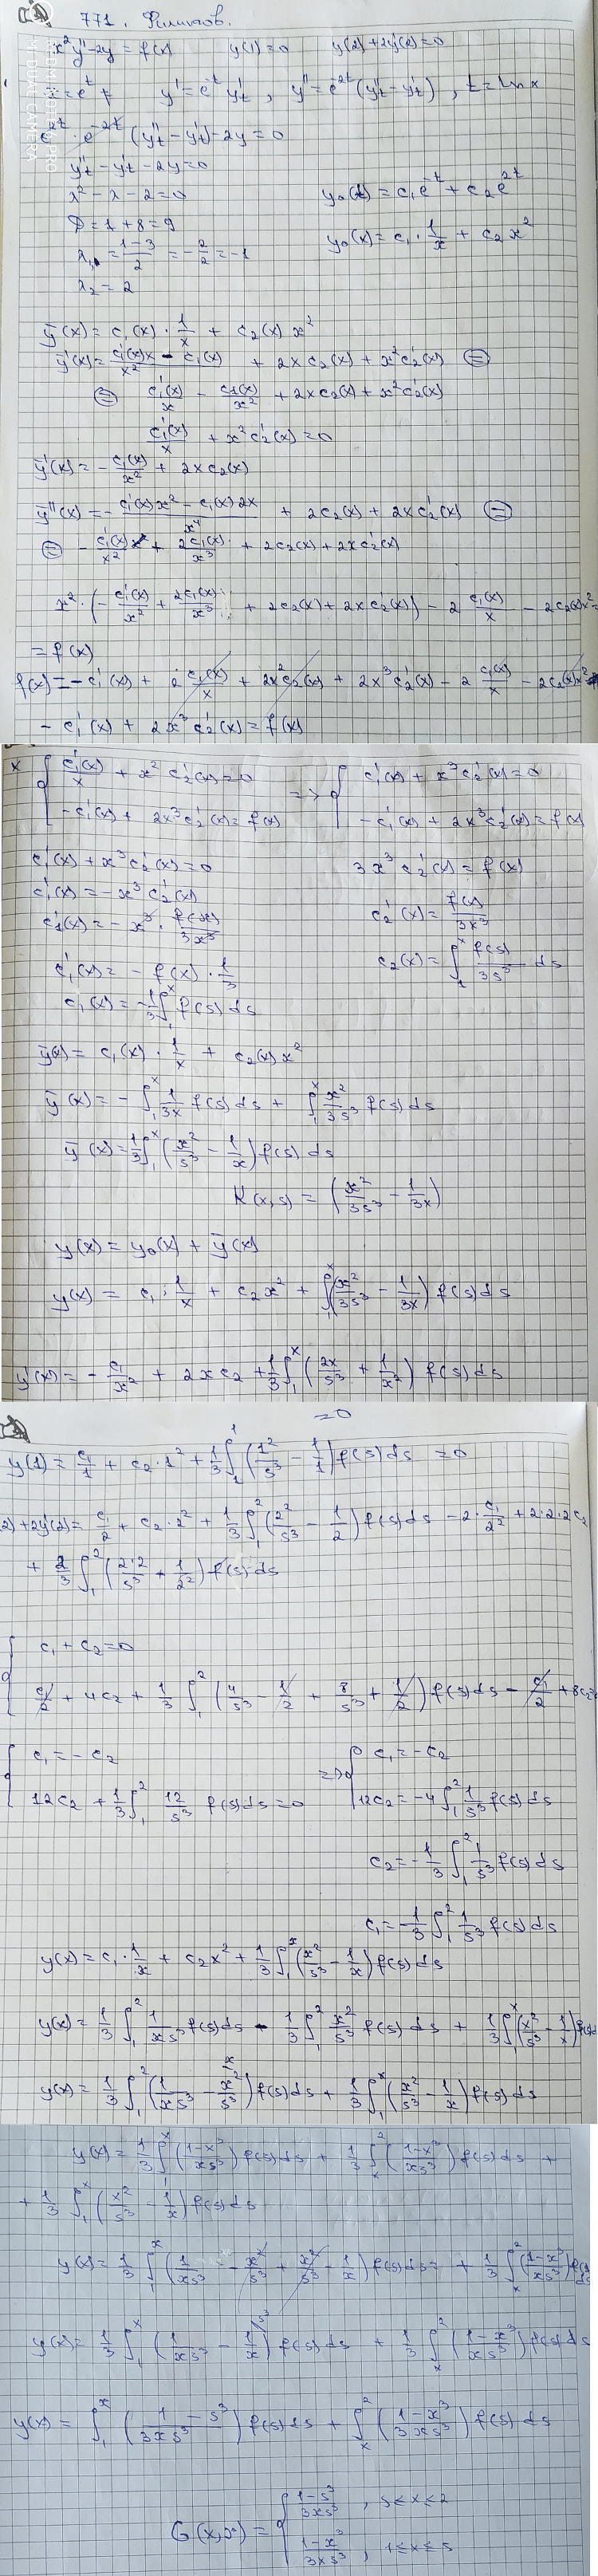 771. Филиппов.
x² y'' - 2y = f(x)    y(1) = 0    y(2) + 2y'(2) = 0
MI DUAL CAMERA
x = e^t, y' = e^{-t} y'_t, y'' = e^{-2t} (y''_t - y'_t), t = ln x
e^{2t} · e^{-2t} (y''_t - y'_t) - 2y = 0
y''_t - y'_t - 2y = 0
λ² - λ - 2 = 0    y₀(t) = c₁e^{-t} + c₂e^{2t}
D = 1 + 8 = 9
λ₁ = (1-3)/2 = -2/2 = -1    y₀(x) = c₁ · 1/x + c₂x²
λ₂ = 2
ȳ(x) = c₁(x) · 1/x + c₂(x) x²
ȳ'(x) = (c₁'(x)x - c₁(x))/x² + 2xc₂(x) + x²c₂'(x) =
= c₁'(x)/x - c₁(x)/x² + 2xc₂(x) + x²c₂'(x)
c₁'(x)/x + x²c₂'(x) = 0
ȳ'(x) = -c₁(x)/x² + 2xc₂(x)
ȳ''(x) = -(c₁'(x)x² - c₁(x)2x)/x⁴ + 2c₂(x) + 2xc₂'(x) =
= -c₁'(x)/x² + 2c₁(x)/x³ + 2c₂(x) + 2xc₂'(x)
x² · (-c₁'(x)/x² + 2c₁(x)/x³ + 2c₂(x) + 2xc₂'(x)) - 2 c₁(x)/x - 2c₂(x)x² =
= f(x)
f(x) = -c₁'(x) + 2 c₁(x)/x + 2x²c₂(x) + 2x³c₂'(x) - 2 c₁(x)/x - 2c₂(x)x²
-c₁'(x) + 2x³c₂'(x) = f(x)
x { c₁'(x)/x + x²c₂'(x) = 0 => { c₁'(x) + x³c₂'(x) = 0
-c₁'(x) + 2x³c₂'(x) = f(x)    -c₁'(x) + 2x³c₂'(x) = f(x)
c₁'(x) + x³c₂'(x) = 0    3x³c₂'(x) = f(x)
c₁'(x) = -x³c₂'(x)
c₁'(x) = -x³ · f(x)/3x³    c₂'(x) = f(x)/3x³
c₁'(x) = -f(x) · 1/3    c₂(x) = ∫₁ˣ f(s)/3s³ ds
c₁(x) = -1/3 ∫₁ˣ f(s) ds
ȳ(x) = c₁(x) · 1/x + c₂(x) x²
ȳ(x) = -∫₁ˣ 1/3x f(s) ds + ∫₁ˣ x²/3s³ f(s) ds
ȳ(x) = 1/3 ∫₁ˣ (x²/s³ - 1/x) f(s) ds
K(x,s) = (x²/3s³ - 1/3x)
y(x) = y₀(x) + ȳ(x)
y(x) = c₁ · 1/x + c₂x² + ∫₁ˣ (x²/3s³ - 1/3x) f(s) ds
y'(x) = -c₁/x² + 2xc₂ + 1/3 ∫₁ˣ (2x/s³ + 1/x²) f(s) ds
= 0
y(1) = c₁/1 + c₂ · 1² + 1/3 ∫₁¹ (1²/s³ - 1/1) f(s) ds = 0
2) + 2y'(2) = c₁/2 + c₂ · 2² + 1/3 ∫₁² (2²/s³ - 1/2) f(s) ds - 2 · c₁/2² + 2·2·2c₂
+ 2/3 ∫₁² (2·2/s³ + 1/2²) f(s) ds
{ c₁ + c₂ = 0
c₁/2 + 4c₂ + 1/3 ∫₁² (4/s³ - 1/2 + 8/s³ + 1/2) f(s) ds - c₁/2 + 8c₂ =
{ c₁ = -c₂ => { c₁ = -c₂
12c₂ + 1/3 ∫₁² 12/s³ f(s) ds = 0    12c₂ = -4 ∫₁² 1/s³ f(s) ds
c₂ = -1/3 ∫₁² 1/s³ f(s) ds
c₁ = -1/3 ∫₁² 1/s³ f(s) ds
y(x) = c₁ · 1/x + c₂x² + 1/3 ∫₁ˣ (x²/s³ - 1/x) f(s) ds
y(x) = 1/3 ∫₁² 1/xs³ f(s) ds - 1/3 ∫₁² x²/s³ f(s) ds + 1/3 ∫₁ˣ (x²/s³ - 1/x) f(s) ds
y(x) = 1/3 ∫₁² (1/xs³ - x²/s³) f(s) ds + 1/3 ∫₁ˣ (x²/s³ - 1/x) f(s) ds
y(x) = 1/3 ∫₁ˣ ((1-x³)/xs³) f(s) ds + 1/3 ∫ₓ² ((1-x³)/xs³) f(s) ds +
+ 1/3 ∫₁ˣ (x²/s³ - 1/x) f(s) ds
y(x) = 1/3 ∫₁ˣ (1/xs³ - x²/s³ + x²/s³ - 1/x) f(s) ds = + 1/3 ∫ₓ² ((1-x³)/xs³) f(s) ds
y(x) = 1/3 ∫₁ˣ (1/xs³ - 1/x) f(s) ds + 1/3 ∫ₓ² ((1-x³)/xs³) f(s) ds
y(x) = ∫₁ˣ ((1-s³)/3xs³) f(s) ds + ∫ₓ² ((1-x³)/3xs³) f(s) ds
G(x,s) = { (1-s³)/3xs³, s ≤ x ≤ 2
(1-x³)/3xs³, 1 ≤ x ≤ s